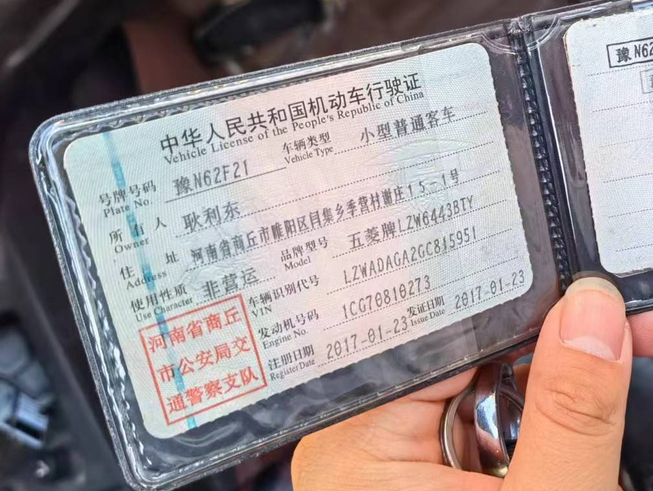 中华人民共和国机动车行驶证
Vehicle License of the People's Republic of China
号牌号码 豫N62F21 车辆类型 小型普通客车
Plate No. Vehicle Type
所有人 耿利东
Owner
住址 河南省商丘市睢阳区闫集乡季营村谢庄15-1号
Address
使用性质 非营运 品牌型号 五菱牌LZW6443BTY
Use Character Model
车辆识别代号 LZWADAGA2GC815951
VIN
发动机号码 1CG70810273
Engine No.
注册日期 2017-01-23 发证日期 2017-01-23
Register Date Issue Date
河南省商丘
市公安局交
通警察支队
豫N62